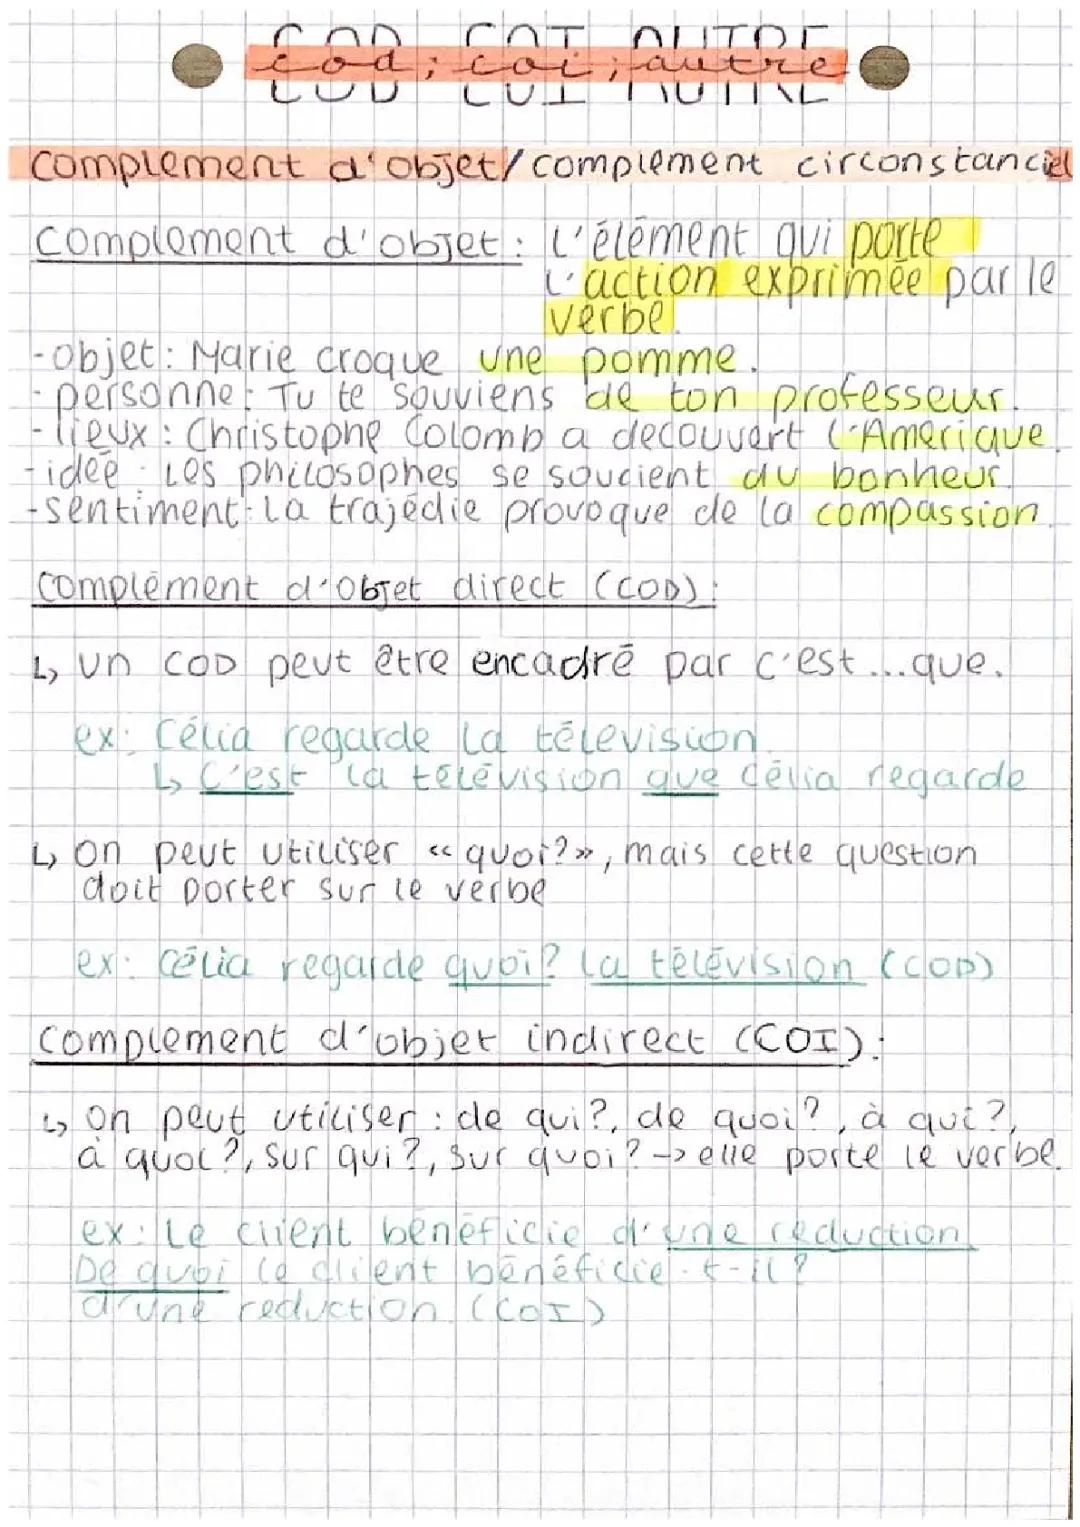 COD COI AUTRE
cod; coi; autre
complement d'objet/complement circonstanciel
complement d'objet: l'élément qui porte
l'action exprimée par le
verbe.
-objet: Marie croque une pomme.
-personne: Tu te souviens de ton professeur.
-lieux: Christophe Colomb a decouvert l'Amerique.
-idée: Les philosophes se soucient du bonheur.
-sentiment: La trajédie provoque de la compassion.
complément d'objet direct (COD):
↳ un COD peut être encadré par c'est...que.
ex: Célia regarde la télevision.
↳ C'est la télévision que Célia regarde
↳ on peut utiliser «quoi?», mais cette question
doit porter sur le verbe
ex: Célia regarde quoi? La télévision (COD)
complement d'objet indirect (COI):
↳ on peut utiliser: de qui?, de quoi?, à qui?,
à quoi?, sur qui?, sur quoi? -> elle porte le verbe.
ex: Le client bénéficie d'une reduction
De quoi le client bénéficie-t-il?
d'une reduction. (COI)